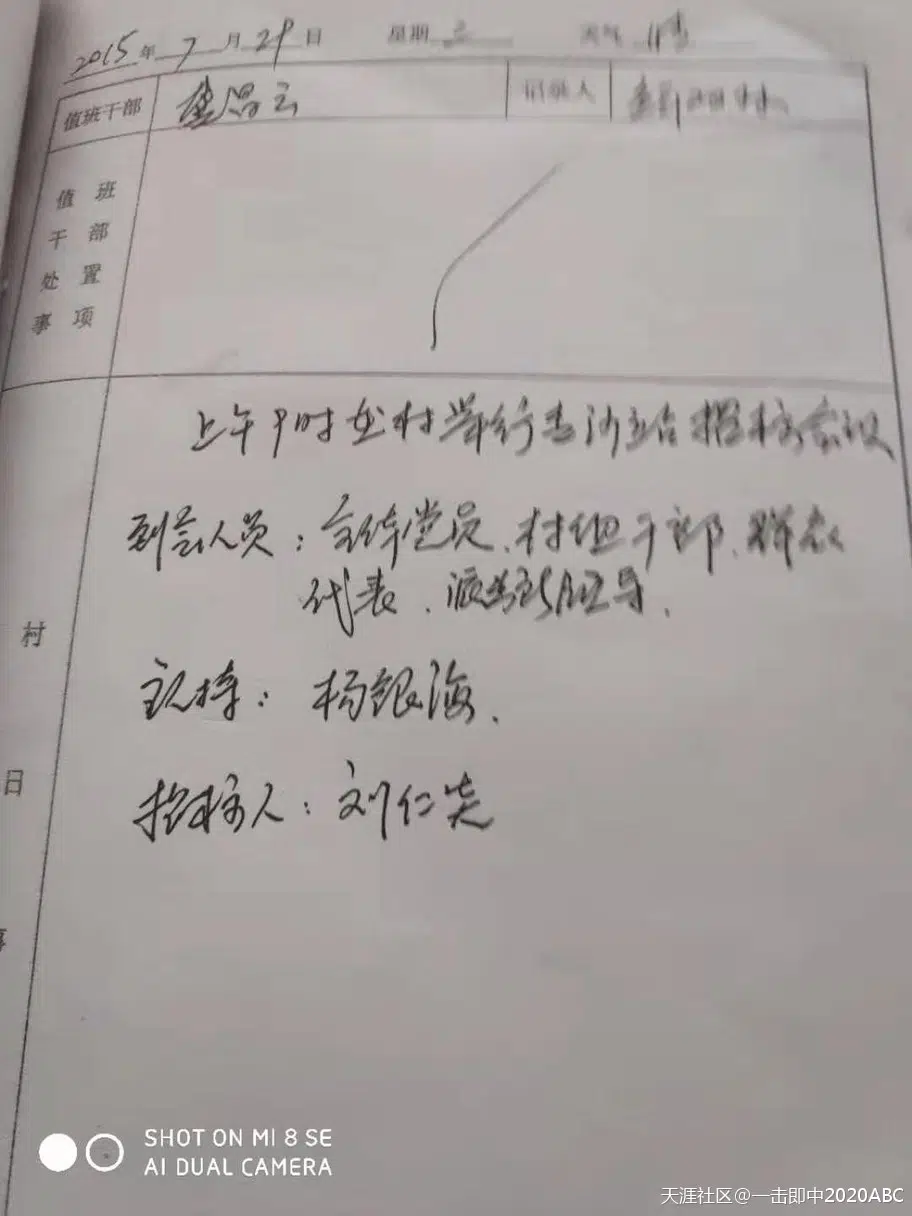 2015年7月29日 星期三 天气 晴
值班干部 记录人
值班
干部
处置
事项
上午9时在村举行 招标会议
到会人员：全体党员、村组干部、群众
代表、
村
主持：杨银海.
日
招标人：刘仁炎
事
SHOT ON MI 8 SE
AI DUAL CAMERA
天涯社区@一击即中2020ABC